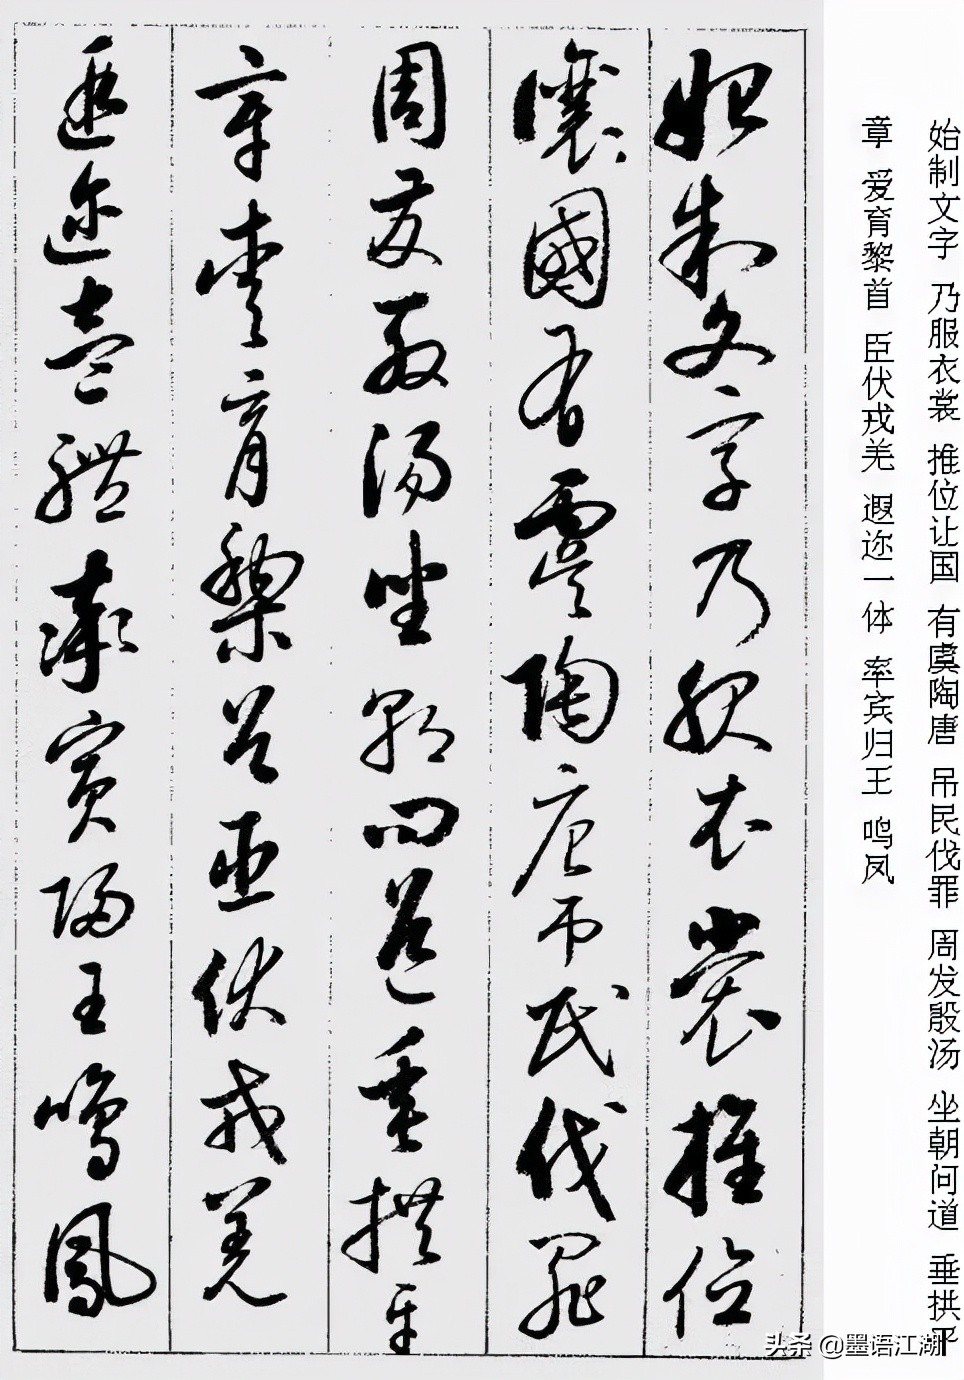 始制文字 乃服衣裳 推位让国 有虞陶唐 吊民伐罪 周发殷汤 坐朝问道 垂拱平
章 爱育黎首 臣伏戎羌 遐迩一体 率宾归王 鸣凤
始制文字乃服衣裳推位
讓國有虞陶唐吊民伐罪
周發殷湯坐朝問道垂拱平
章愛育黎首臣伏戎羌
遐邇壹體率賓歸王鳴鳳
头条 @墨语江湖